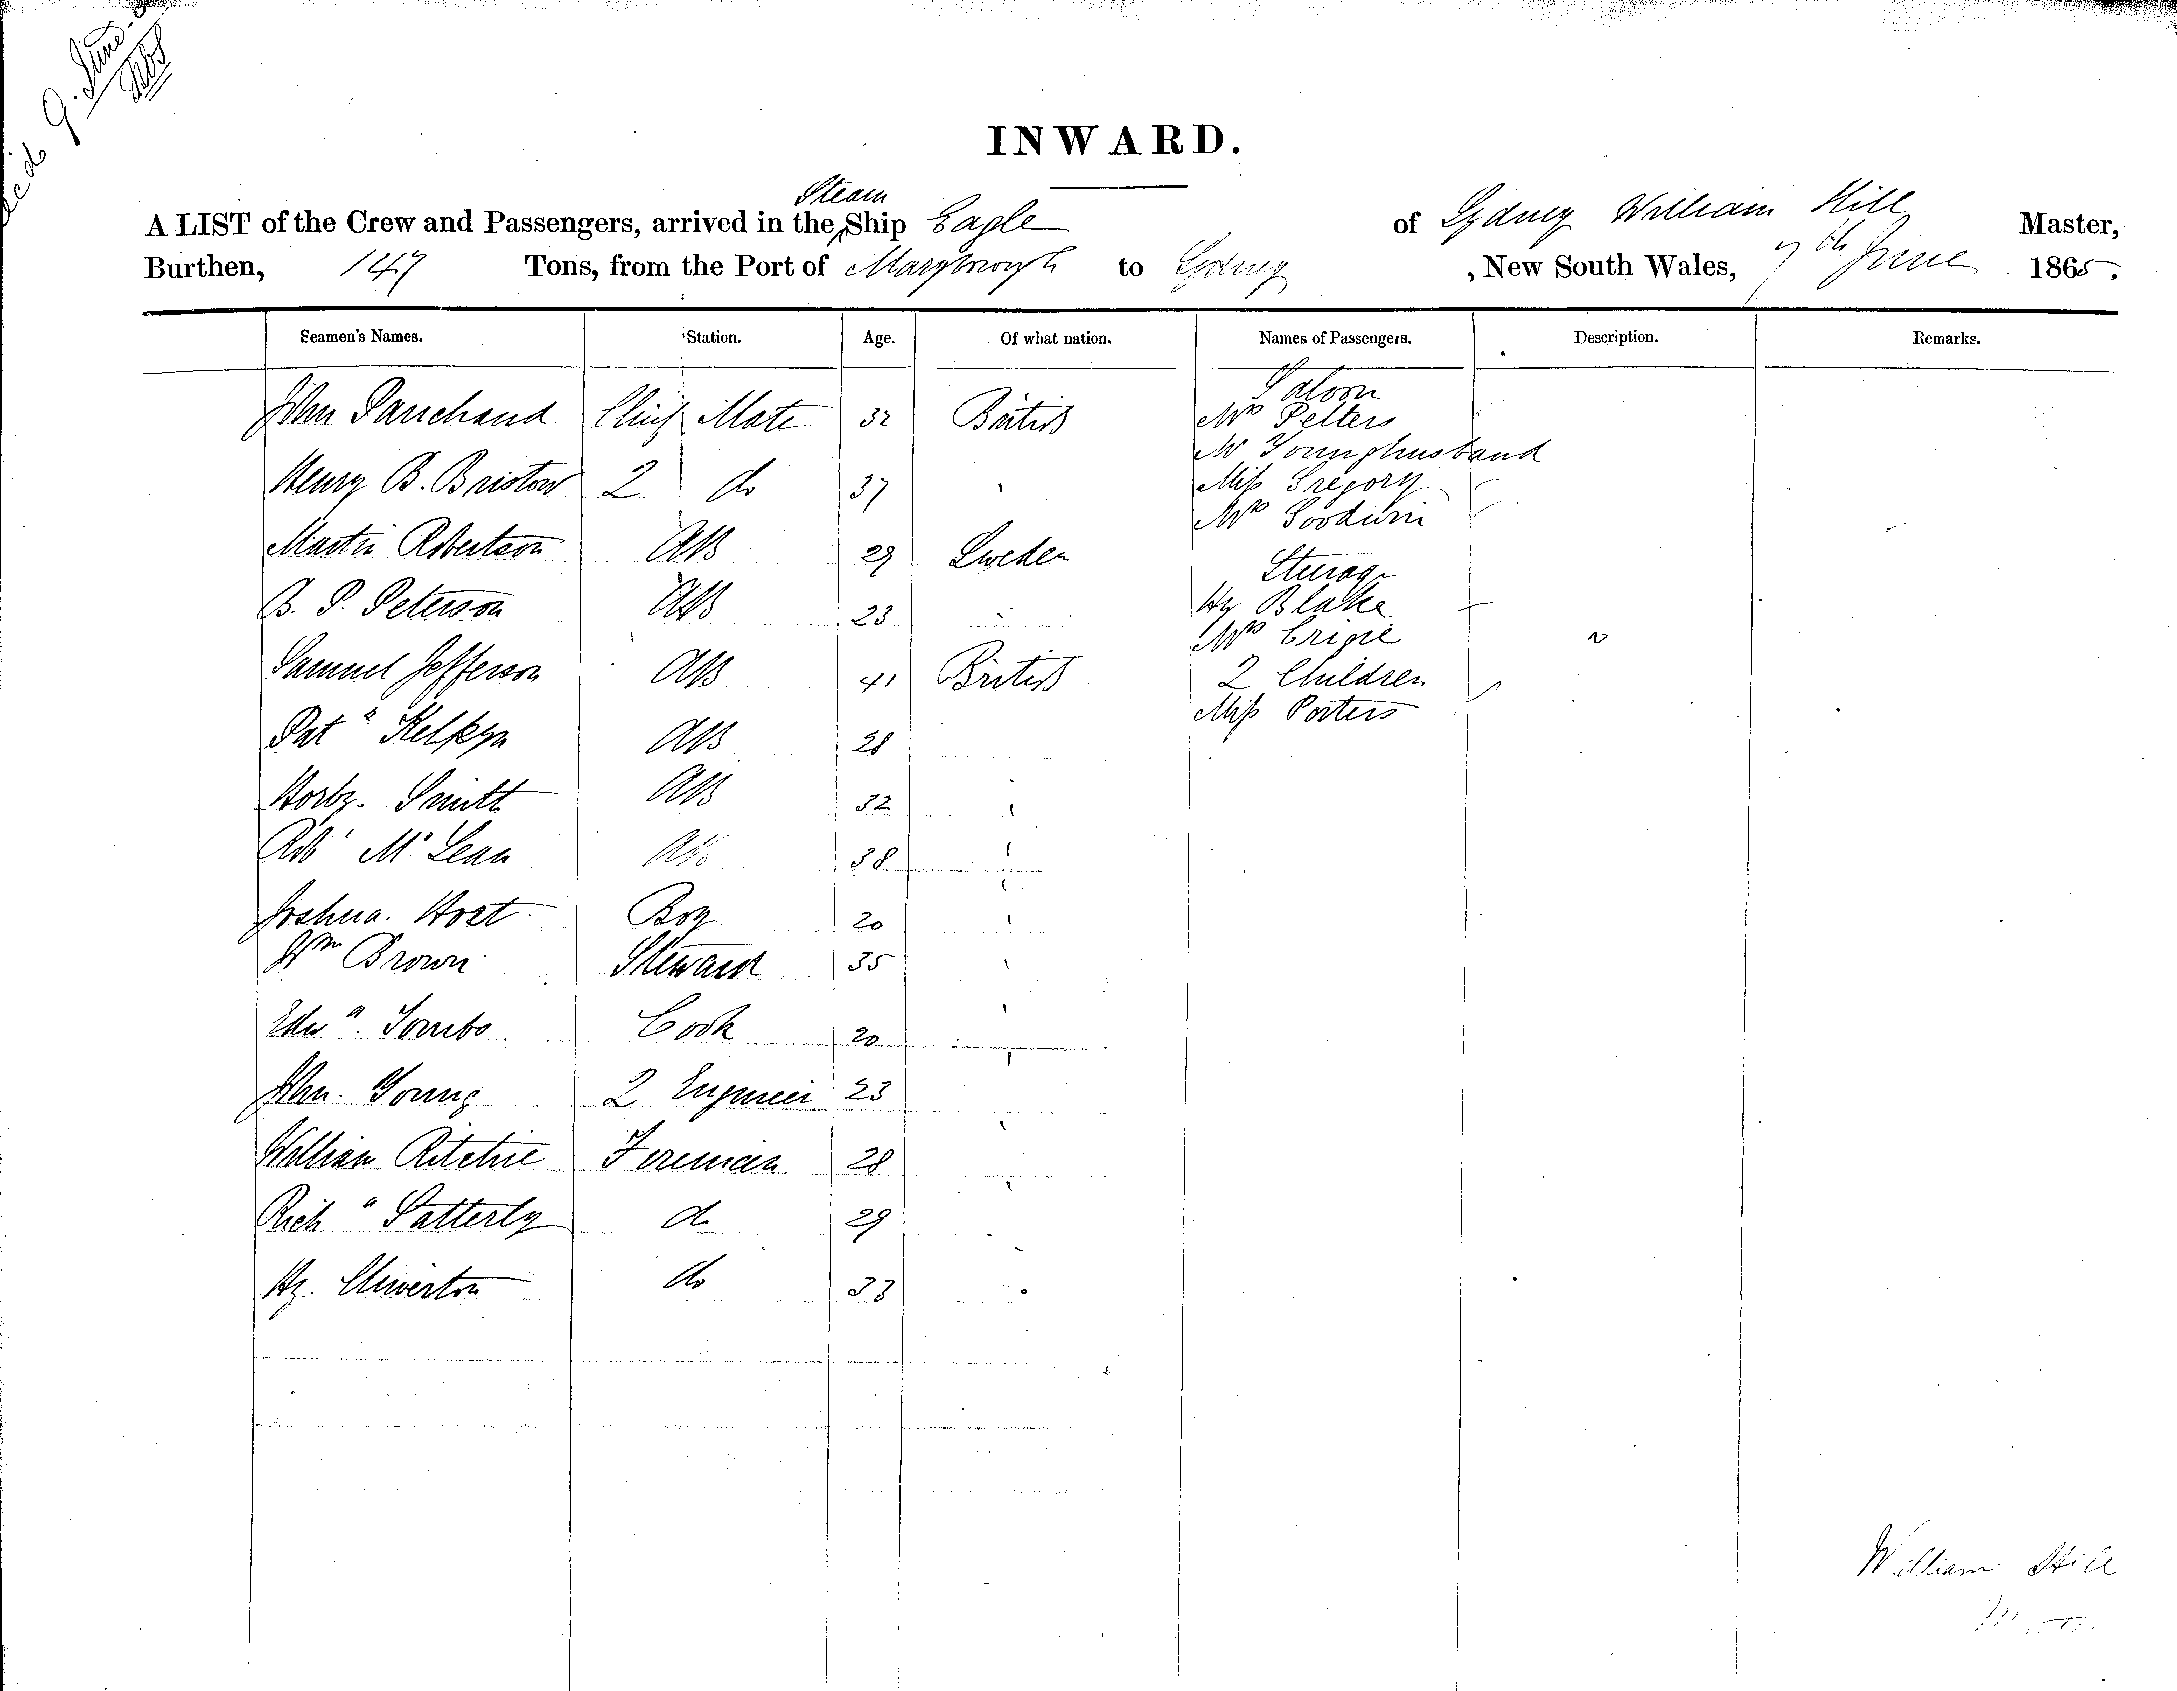 9. June
INWARD.
Steam
A LIST of the Crew and Passengers, arrived in the Ship Eagle of Sydney William Hill Master,
Burthen, 147 Tons, from the Port of Maryborough to Sydney , New South Wales, 7th June 1865.
Seamen's Names. Station. Age. Of what nation. Names of Passengers. Description. Remarks.
Saloon
John Panchand Chief Mate 32 British Mrs Pelters
Mr Younghusband
Henry B. Bristow 2 do 37 Miss Gregory
Mrs Goodwin
Martin Robertson AB 29 Sweden
Sturage
B. P. Peterson AB 23 Hy Blake
Mrs
Samuel Jefferson AB 41 British 2 Children
Miss Porters
Patk AB 28
Smith AB 32
Robt McLean AB 38
Joshua. Boy 20
Wm Brown Steward 35
Edwd. Cook 20
John. Young 2 Engineer 23
William Ritchie Foreman 28
Richd Satterly do 29
Hy. Chiverton do 33
William Hill